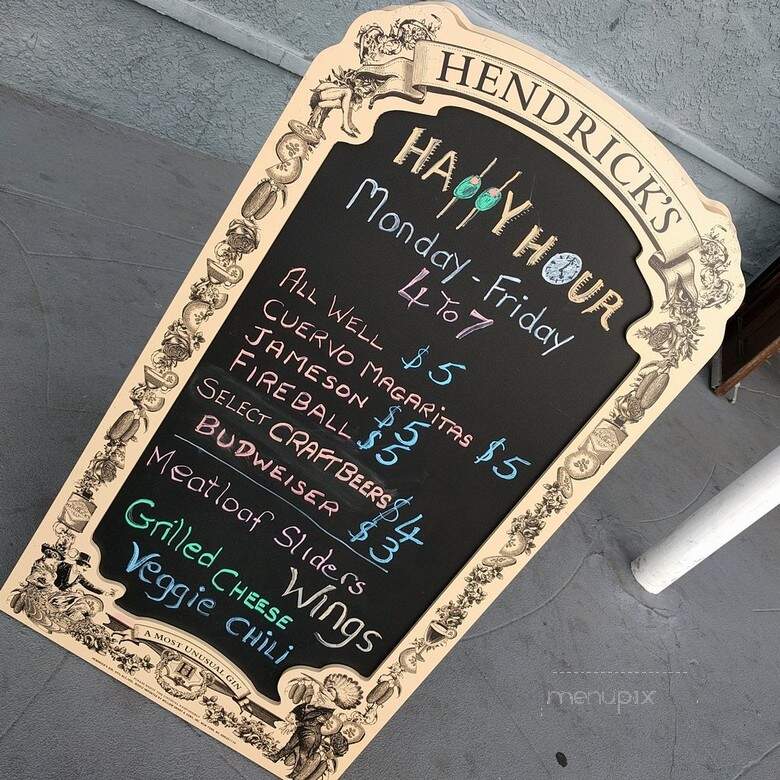 HENDRICK'S
HAPPY HOUR
Monday - Friday
4 TO 7
ALL WELL $5
CUERVO MAGARITAS $5
JAMESON $5
FIREBALL $5
SELECT CRAFT BEERS $4
BUDWEISER $3
Meatloaf Sliders
Grilled CHEESE Wings
Veggie CHILI
A MOST UNUSUAL GIN
H
menupix